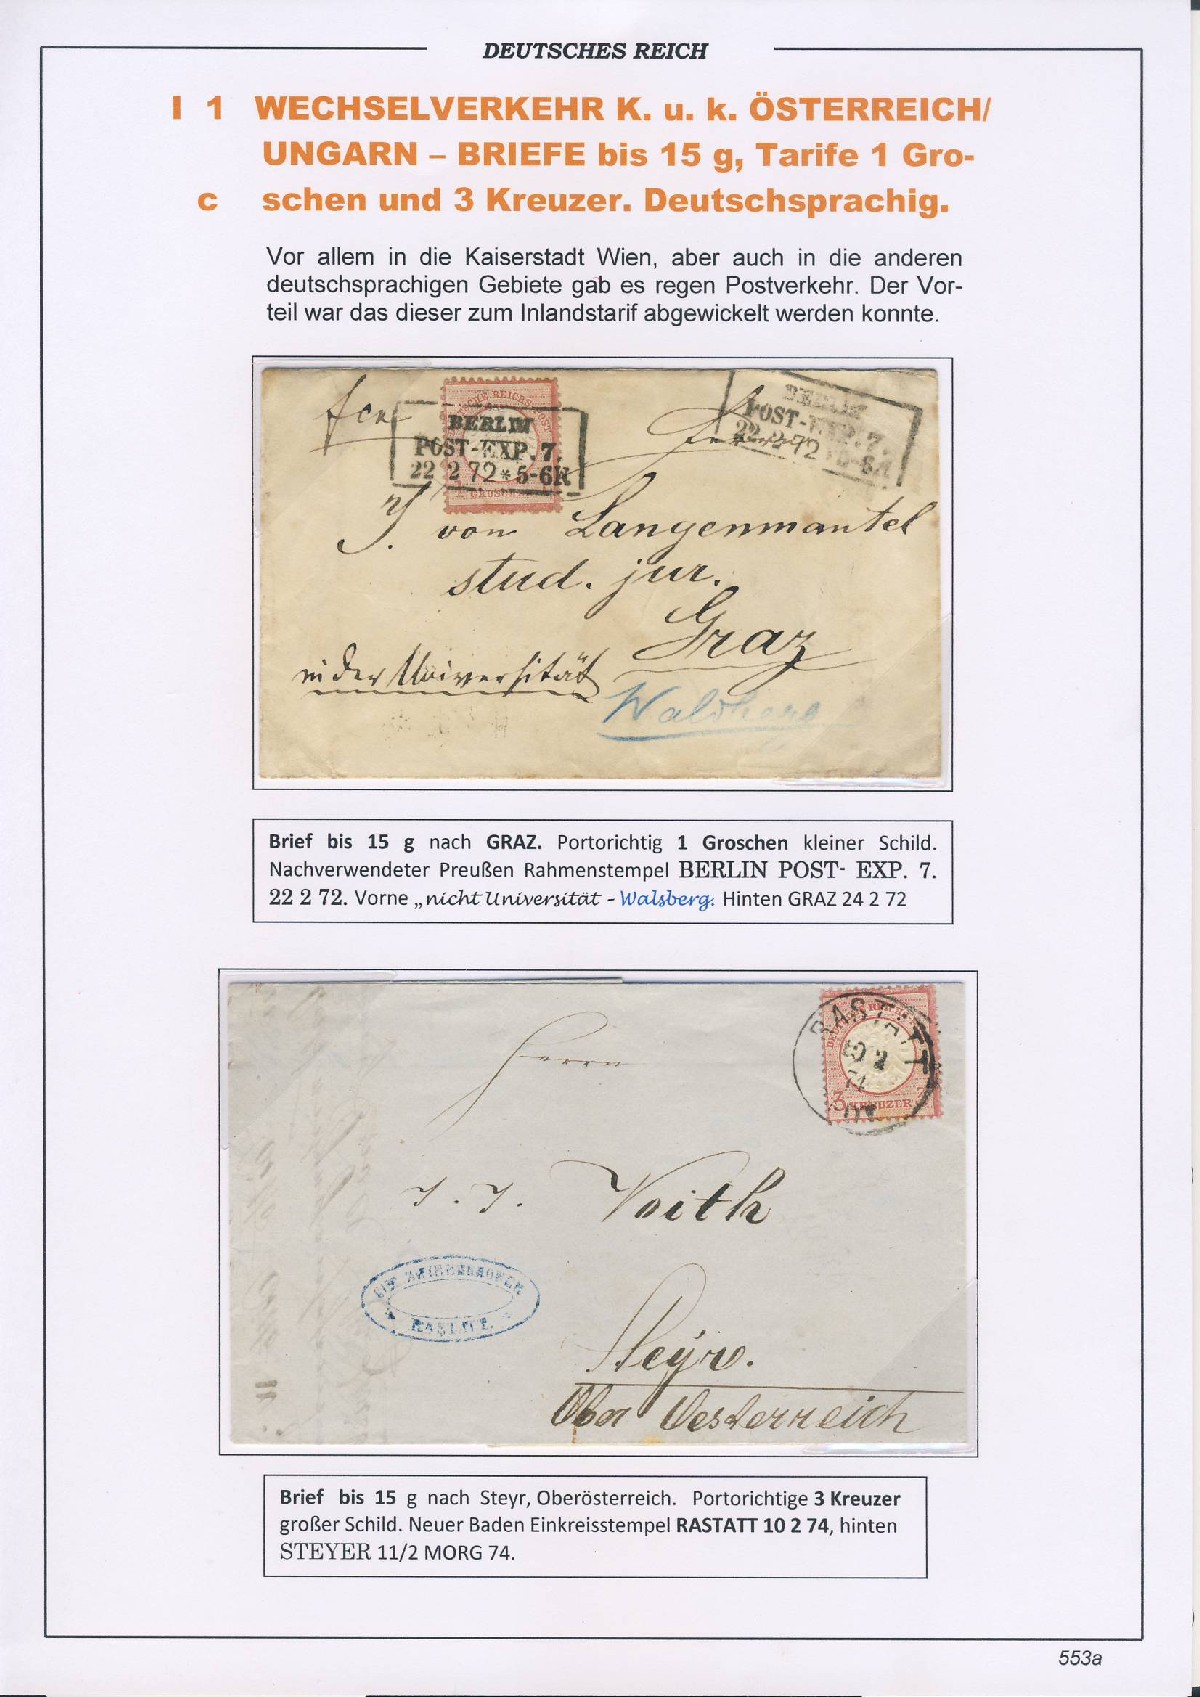 DEUTSCHES REICH
I 1 WECHSELVERKEHR K. u. k. ÖSTERREICH/
UNGARN – BRIEFE bis 15 g, Tarife 1 Gro-
c schen und 3 Kreuzer. Deutschsprachig.
Vor allem in die Kaiserstadt Wien, aber auch in die anderen
deutschsprachigen Gebiete gab es regen Postverkehr. Der Vor-
teil war das dieser zum Inlandstarif abgewickelt werden konnte.
BERLIN
POST-EXP. 7.
22 2 72 * 5-6N
BERLIN
POST-EXP. 7.
22 2 72
von Langenmantel
stud. jur.
Graz
in der Universität
Brief bis 15 g nach GRAZ. Portorichtig 1 Groschen kleiner Schild.
Nachverwendeter Preußen Rahmenstempel BERLIN POST- EXP. 7.
22 2 72. Vorne „nicht Universität - Walsberg. Hinten GRAZ 24 2 72
RASTATT
10 2
74
3 KREUZER
Herrn
J. J. Voith
Steyr.
Ober Oesterreich
Brief bis 15 g nach Steyr, Oberösterreich. Portorichtige 3 Kreuzer
großer Schild. Neuer Baden Einkreisstempel RASTATT 10 2 74, hinten
STEYER 11/2 MORG 74.
553a